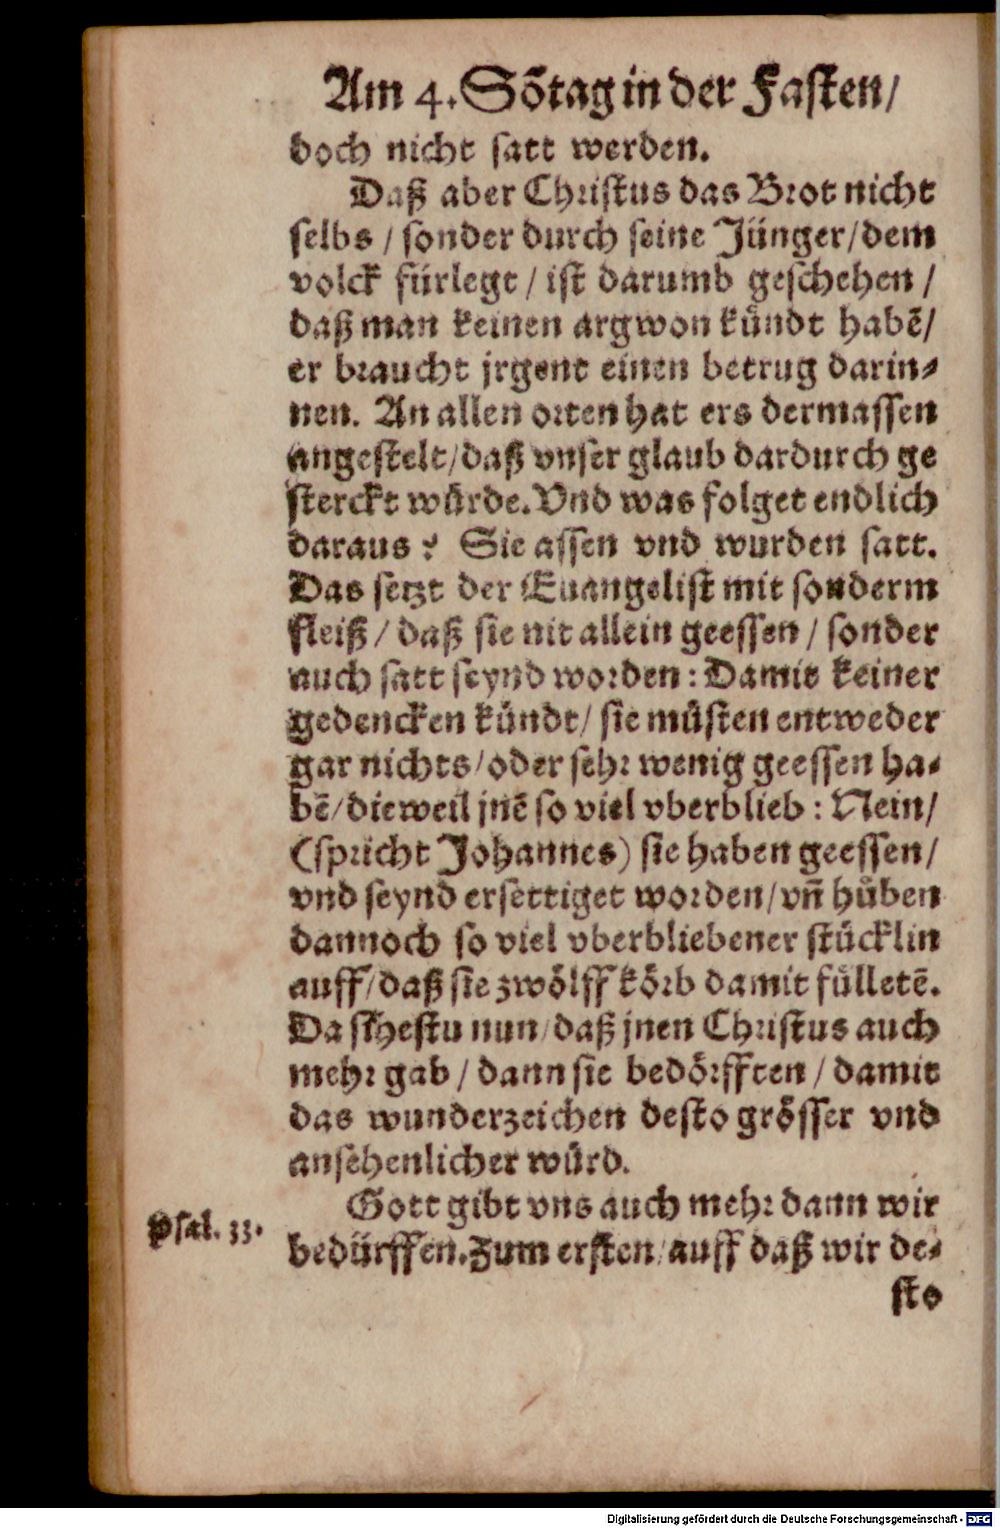 Am 4. Sõtag in der Fasten/
doch nicht satt werden.
Daß aber Christus das Brot nicht
selbs / sonder durch seine Jünger/dem
volck fürlegt / ist darumb geschehen /
daß man keinen argwon kündt habẽ/
er braucht jrgent einen betrug darin-
nen. An allen orten hat ers dermassen
angestelt/daß vnser glaub dardurch ge
sterckt würde. Vnd was folget endlich
daraus? Sie assen vnd wurden satt.
Das setzt der Euangelist mit sonderm
fleiß / daß sie nit allein geessen / sonder
auch satt seynd worden: Damit keiner
gedencken kündt/ sie müsten entweder
gar nichts/oder sehr wenig geessen ha-
bẽ/dieweil jnẽ so viel vberblieb: Nein/
(spricht Johannes) sie haben geessen/
vnd seynd ersettiget worden/vñ hůben
dannoch so viel vberbliebener stücklin
auff/daß sie zwölff körb damit fülletẽ.
Da sihestu nun/daß jnen Christus auch
mehr gab / dann sie bedörfften / damit
das wunderzeichen desto grösser vnd
ansehenlicher würd.
Gott gibt vns auch mehr dann wir
Psal. 33.
bedürffen. Zum ersten/auff daß wir de-
sto
Digitalisierung gefördert durch die Deutsche Forschungsgemeinschaft - DFG